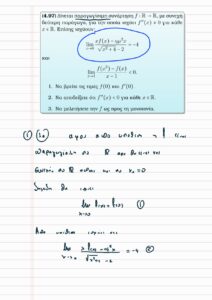 (4.97) Δίνεται παραγωγίσιμη συνάρτηση f : ℝ → ℝ, με συνεχή
δεύτερη παράγωγο, για την οποία ισχύει f''(x) ≠ 0 για κάθε
x ∈ ℝ. Επίσης ισχύουν:
lim x→0 (xf(x) − ημ²x) / (√(x²+4) − 2) = −4
και
lim x→1 (f(x²) − f(x)) / (x − 1) < 0.
1. Να βρείτε τις τιμές f(0) και f'(0).
2. Να αποδείξετε ότι f''(x) < 0 για κάθε x ∈ ℝ.
3. Να μελετήσετε την f ως προς τη μονοτονία.
① αφού από υπόθεση η f είναι
παραγωγίσιμη στο ℝ άρα θα είναι και
συνεχής στο ℝ και στο x₀=0
δηλαδή θα ισχύει
lim x→0 f(x) = f(0) ①
Από υπόθεση ισχύει
lim x→0 (x f(x) − ημ²x) / (√(x²+4) − 2) = −4 ②